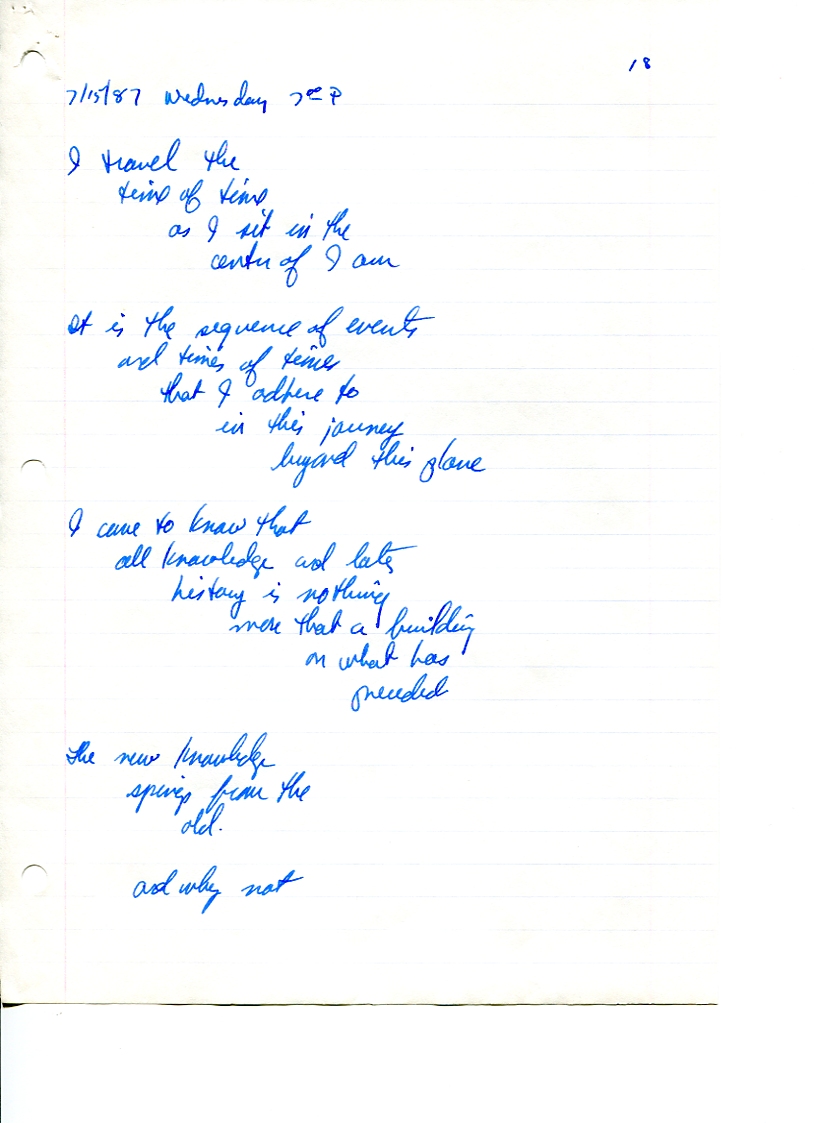 18
7/15/87 Wednesday 7 00 P
I travel the
time of time
as I sit in the
center of I am
It is the sequence of events
and times of times
that I adhere to
in this journey
beyond this plane
I came to know that
all knowledge and later
history is nothing
more that a building
on what has
preceded
the new knowledge
springs from the
old.
and why not